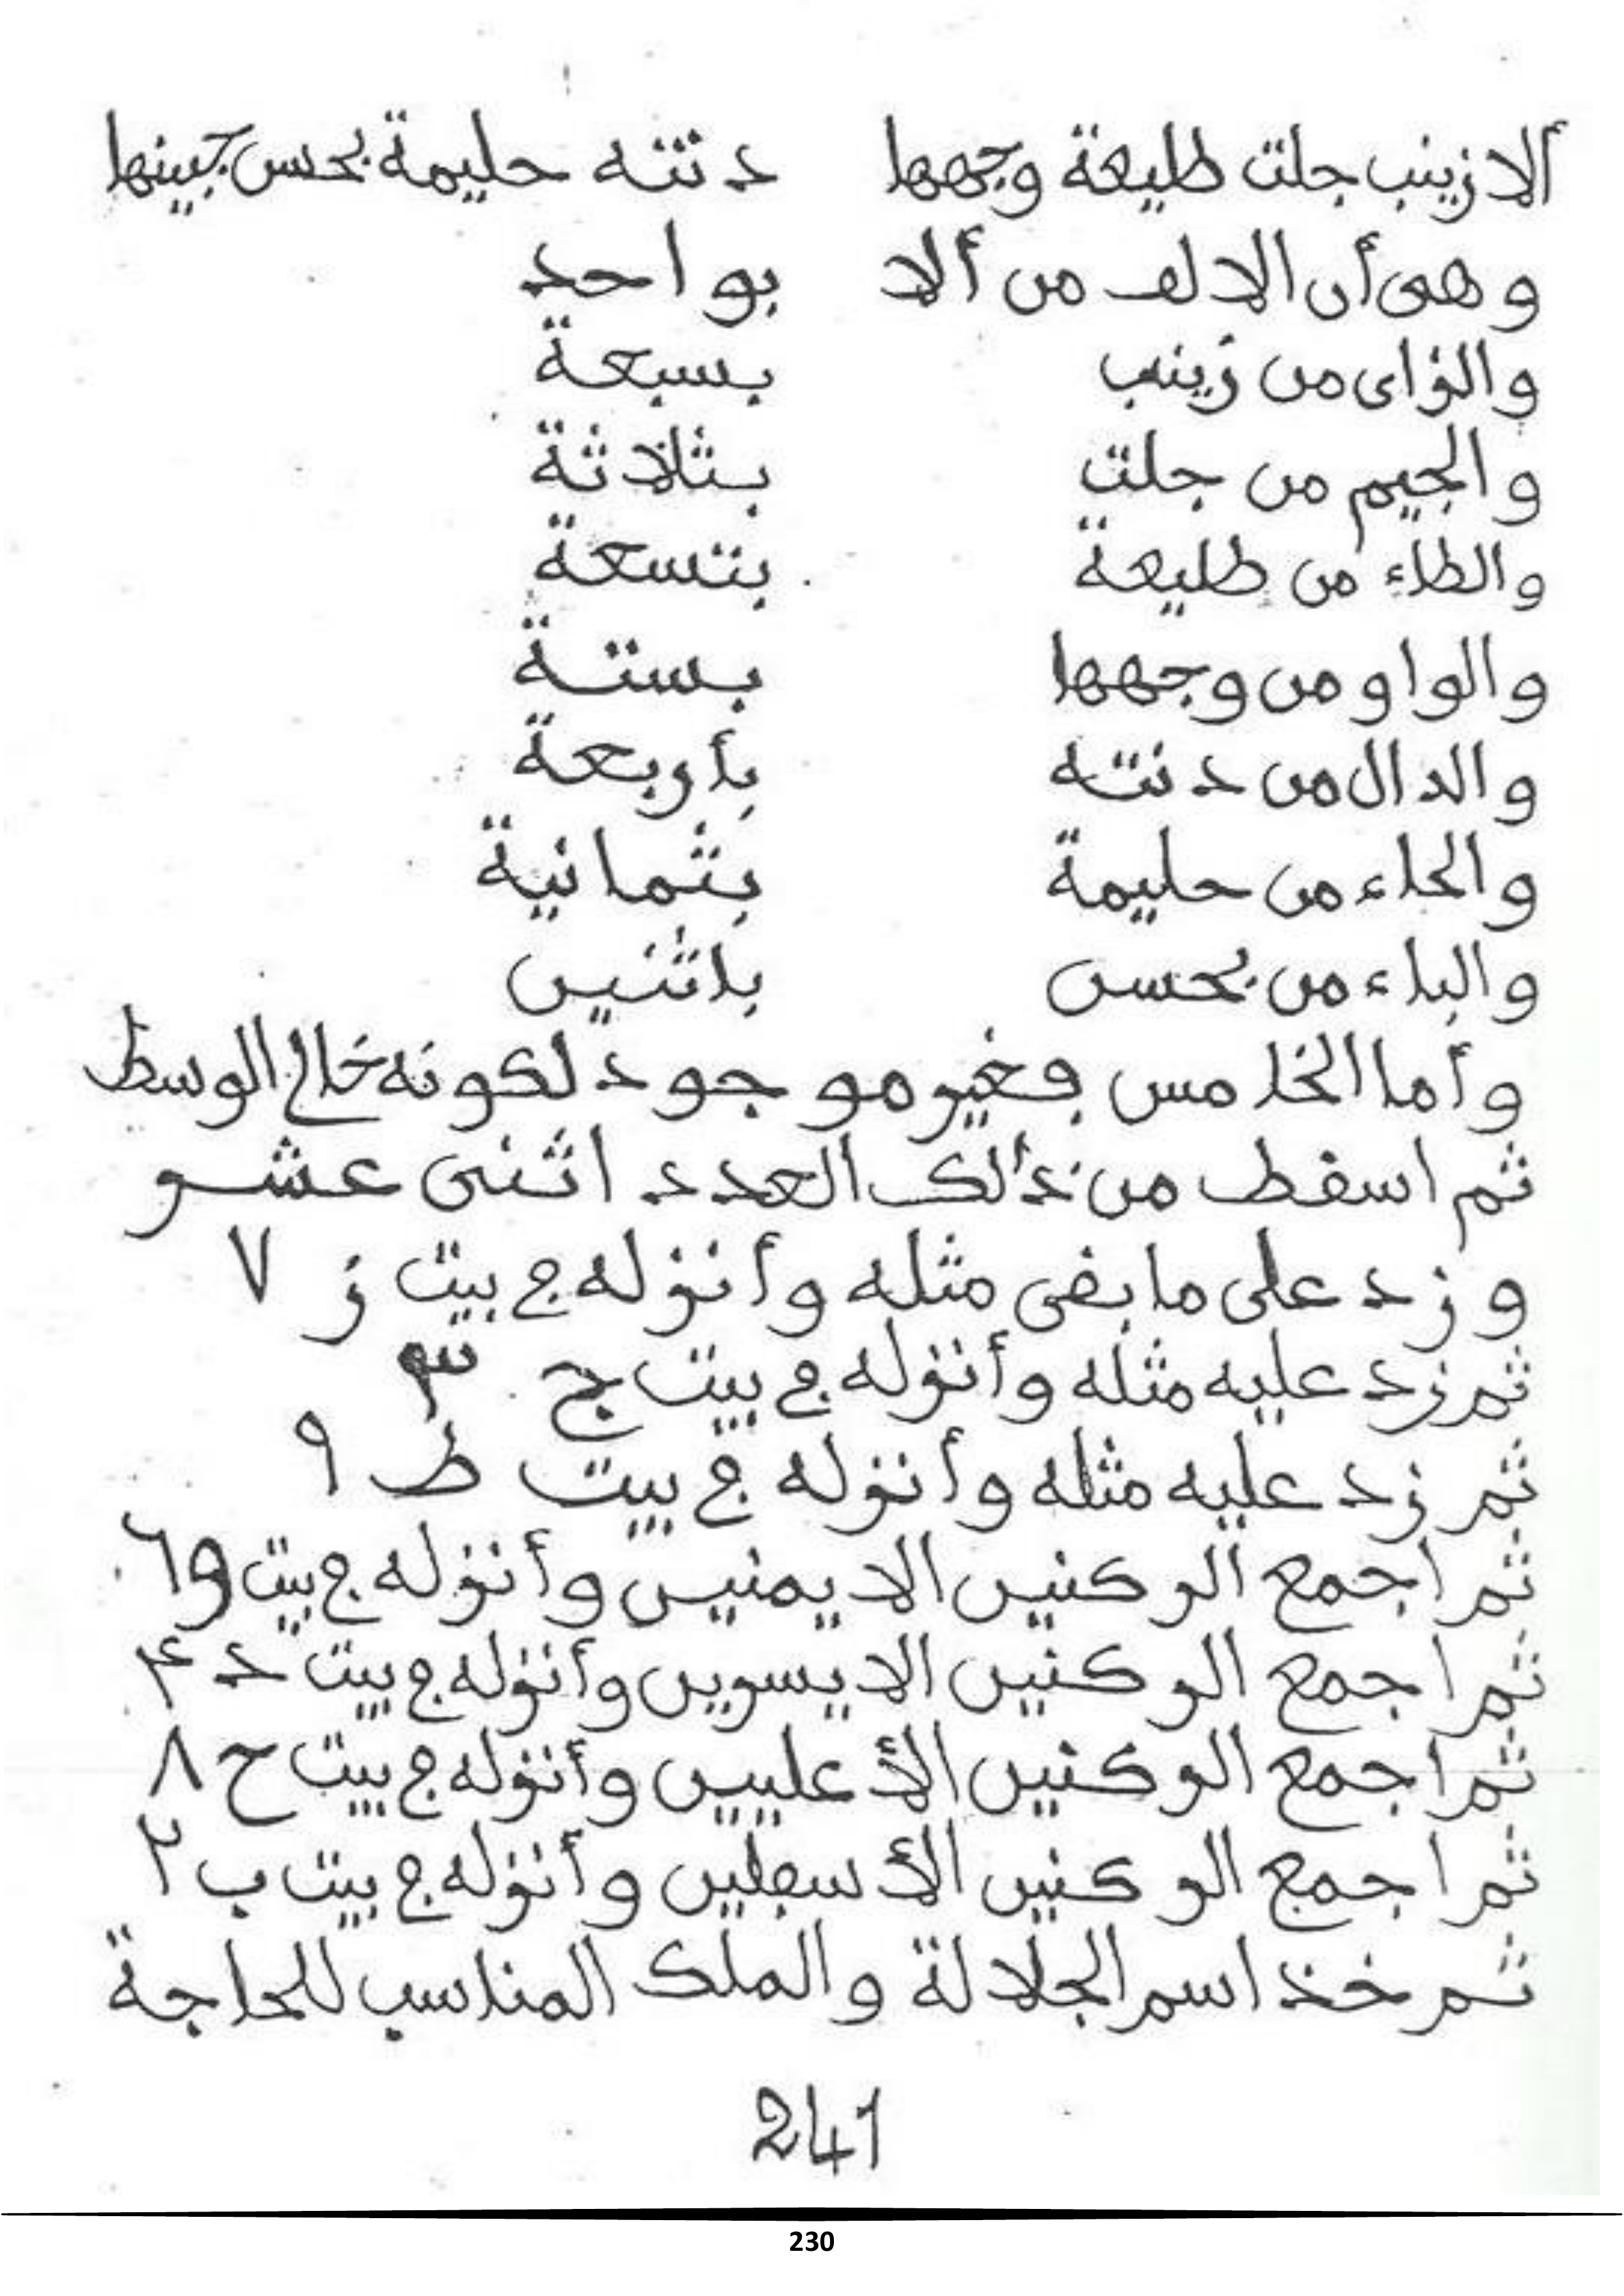 ألا زينب جلت طليعة وجهها دنته حليمة بحسن جبينها
وهى أن الالف من ألا بواحد
والزاى من زينب بسبعة
والجيم من جلت بثلاثة
والطاء من طليعة بتسعة
والواو من وجهها بستة
والدال من دنته بأربعة
والحاء من حليمة بثمانية
والباء من بحسن باثنين
وأما الخامس فغير موجود لكونه خالى الوسط
ثم اسقط من ذالك العدد اثنى عشر
وزد على ما بقى مثله وأنزله في بيت ز ٧
ثم زد عليه مثله وأنزله في بيت ج ٣
ثم زد عليه مثله وأنزله في بيت ط ٩
ثم اجمع الركنين الايمنين وأنزله في بيت و ٦
ثم اجمع الركنين الايسرين وأنزله في بيت د ۴
ثم اجمع الركنين الأعليين وأنزله في بيت ح ٨
ثم اجمع الركنين الأسفلين وأنزله في بيت ب ٢
ثم خذ اسم الجلالة والملك المناسب للحاجة
241
230